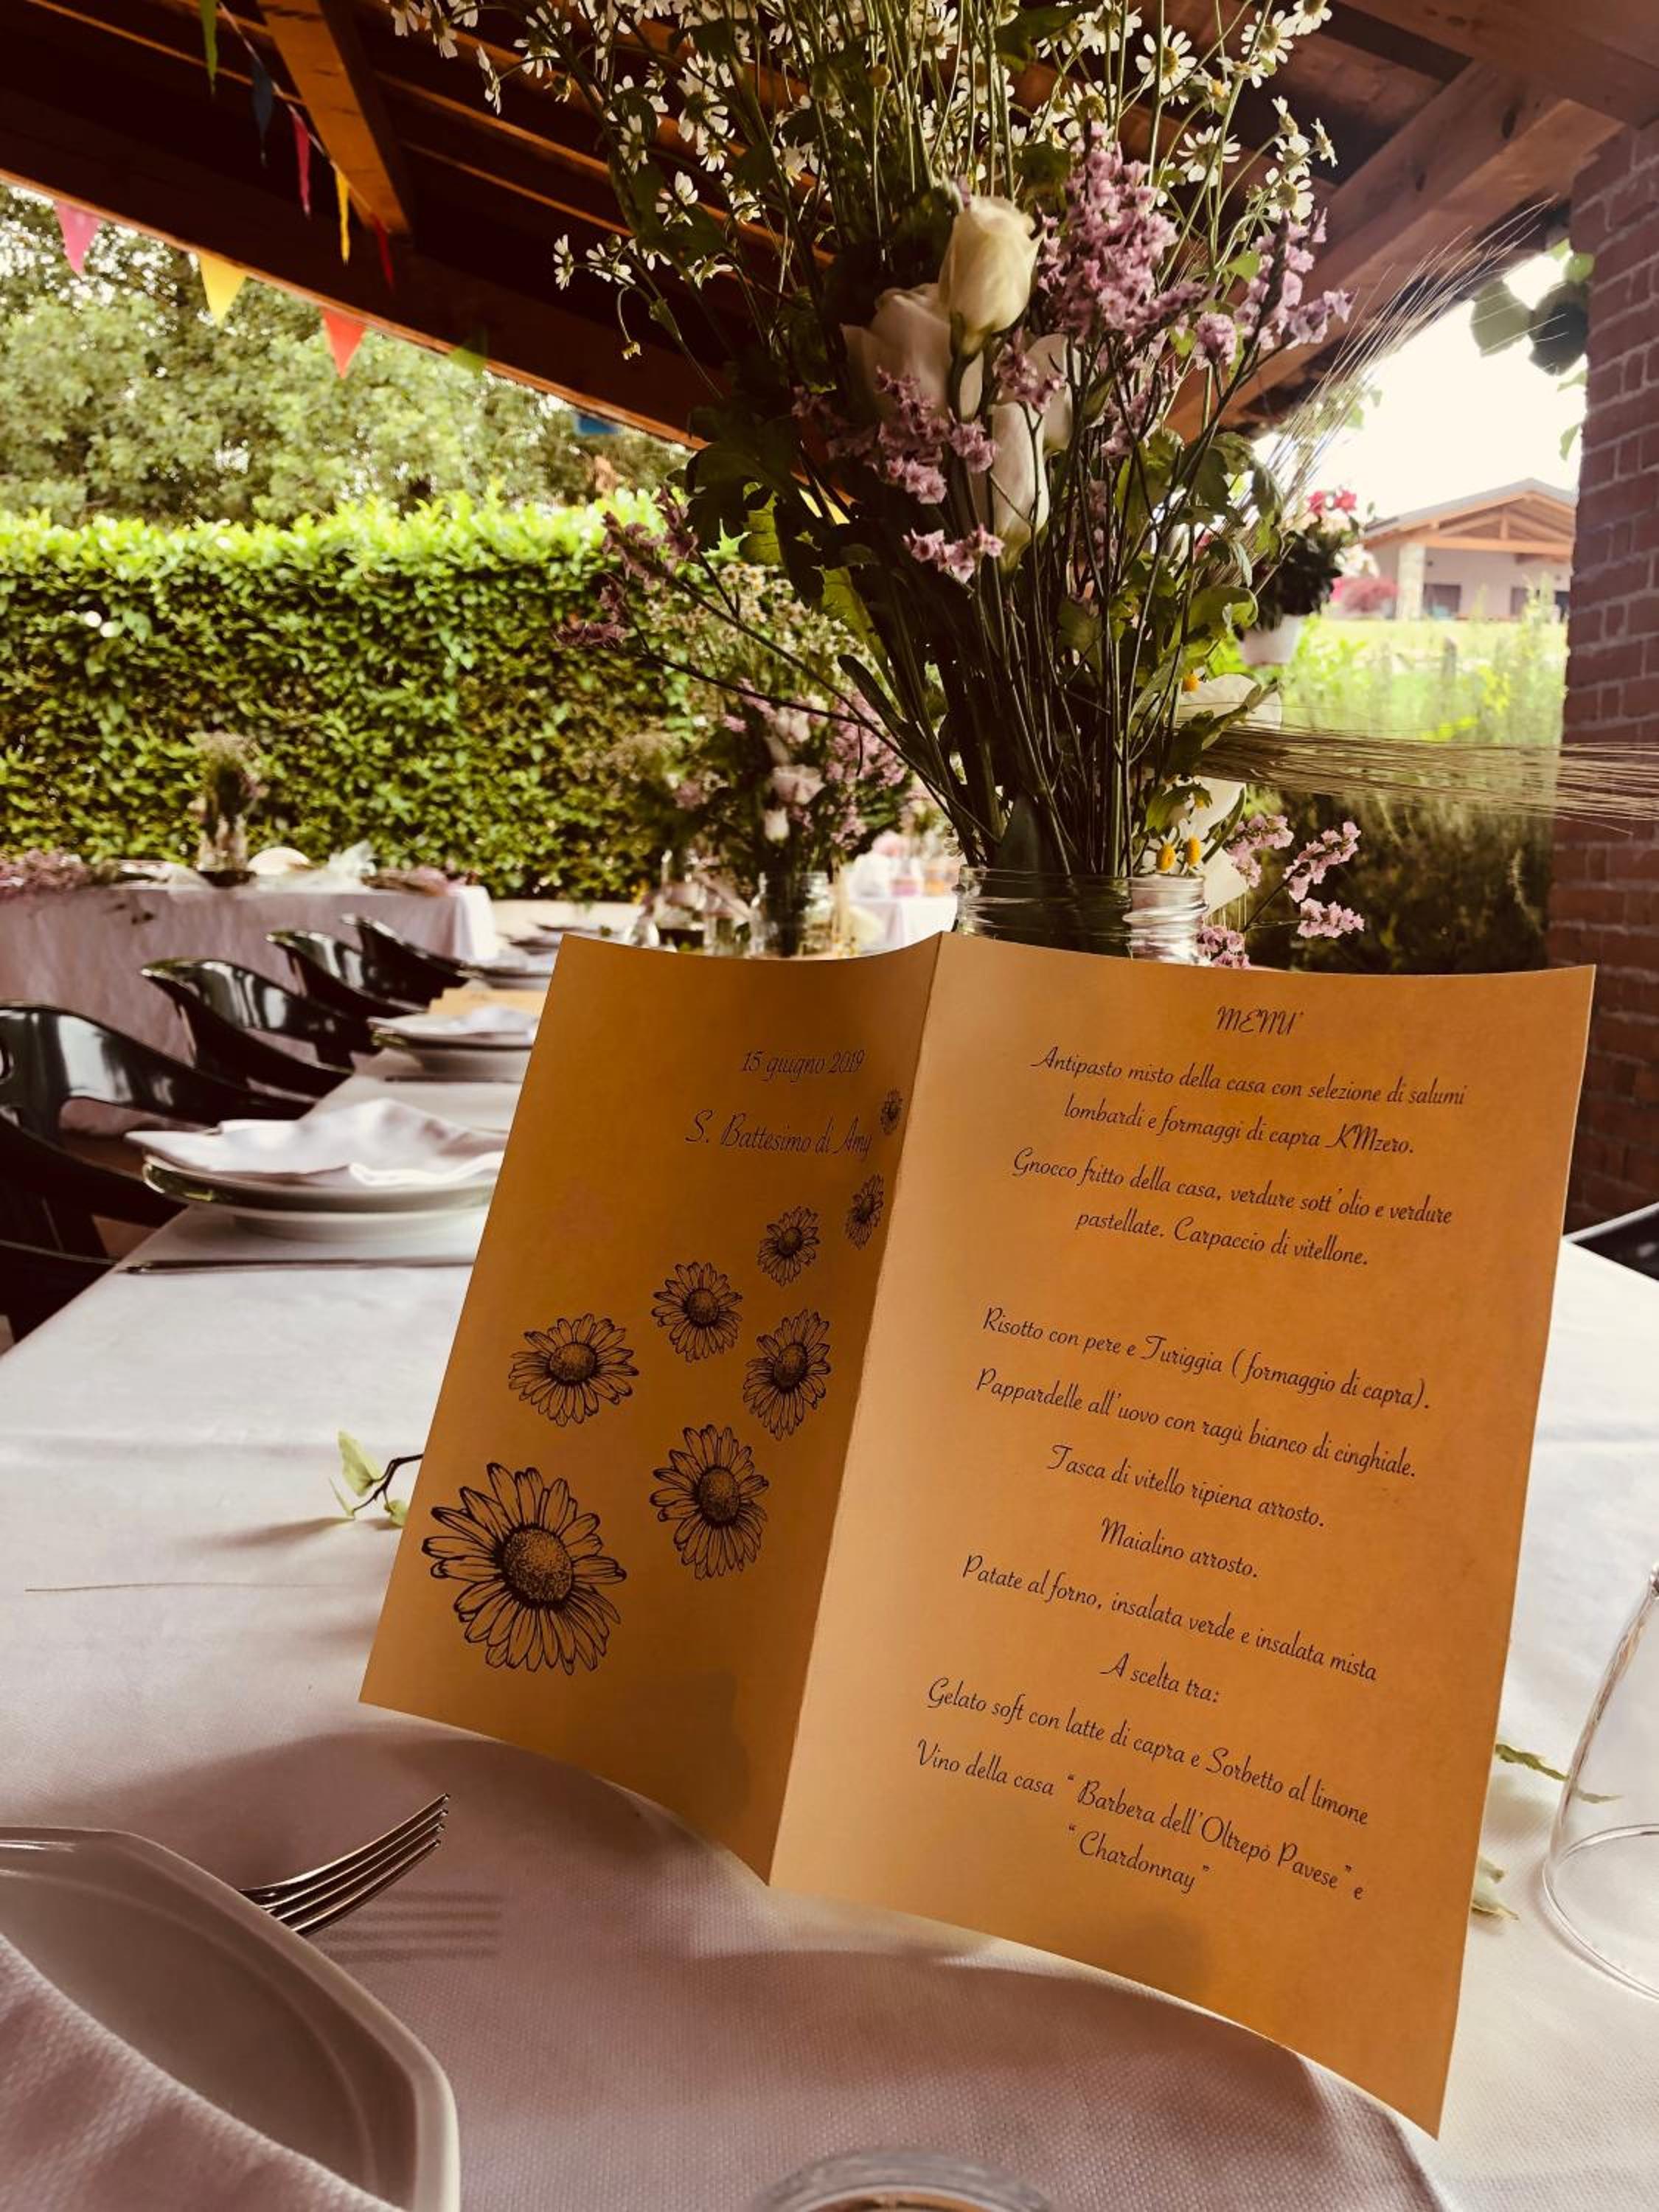 15 giugno 2019
S. Battesimo di Amy
MENU'
Antipasto misto della casa con selezione di salumi
lombardi e formaggi di capra KMzero.
Gnocco fritto della casa, verdure sott'olio e verdure
pastellate. Carpaccio di vitellone.
Risotto con pere e Turiggia (formaggio di capra).
Pappardelle all'uovo con ragù bianco di cinghiale.
Tasca di vitello ripiena arrosto.
Maialino arrosto.
Patate al forno, insalata verde e insalata mista
A scelta tra:
Gelato soft con latte di capra e Sorbetto al limone
Vino della casa "Barbera dell'Oltrepò Pavese" e
"Chardonnay"